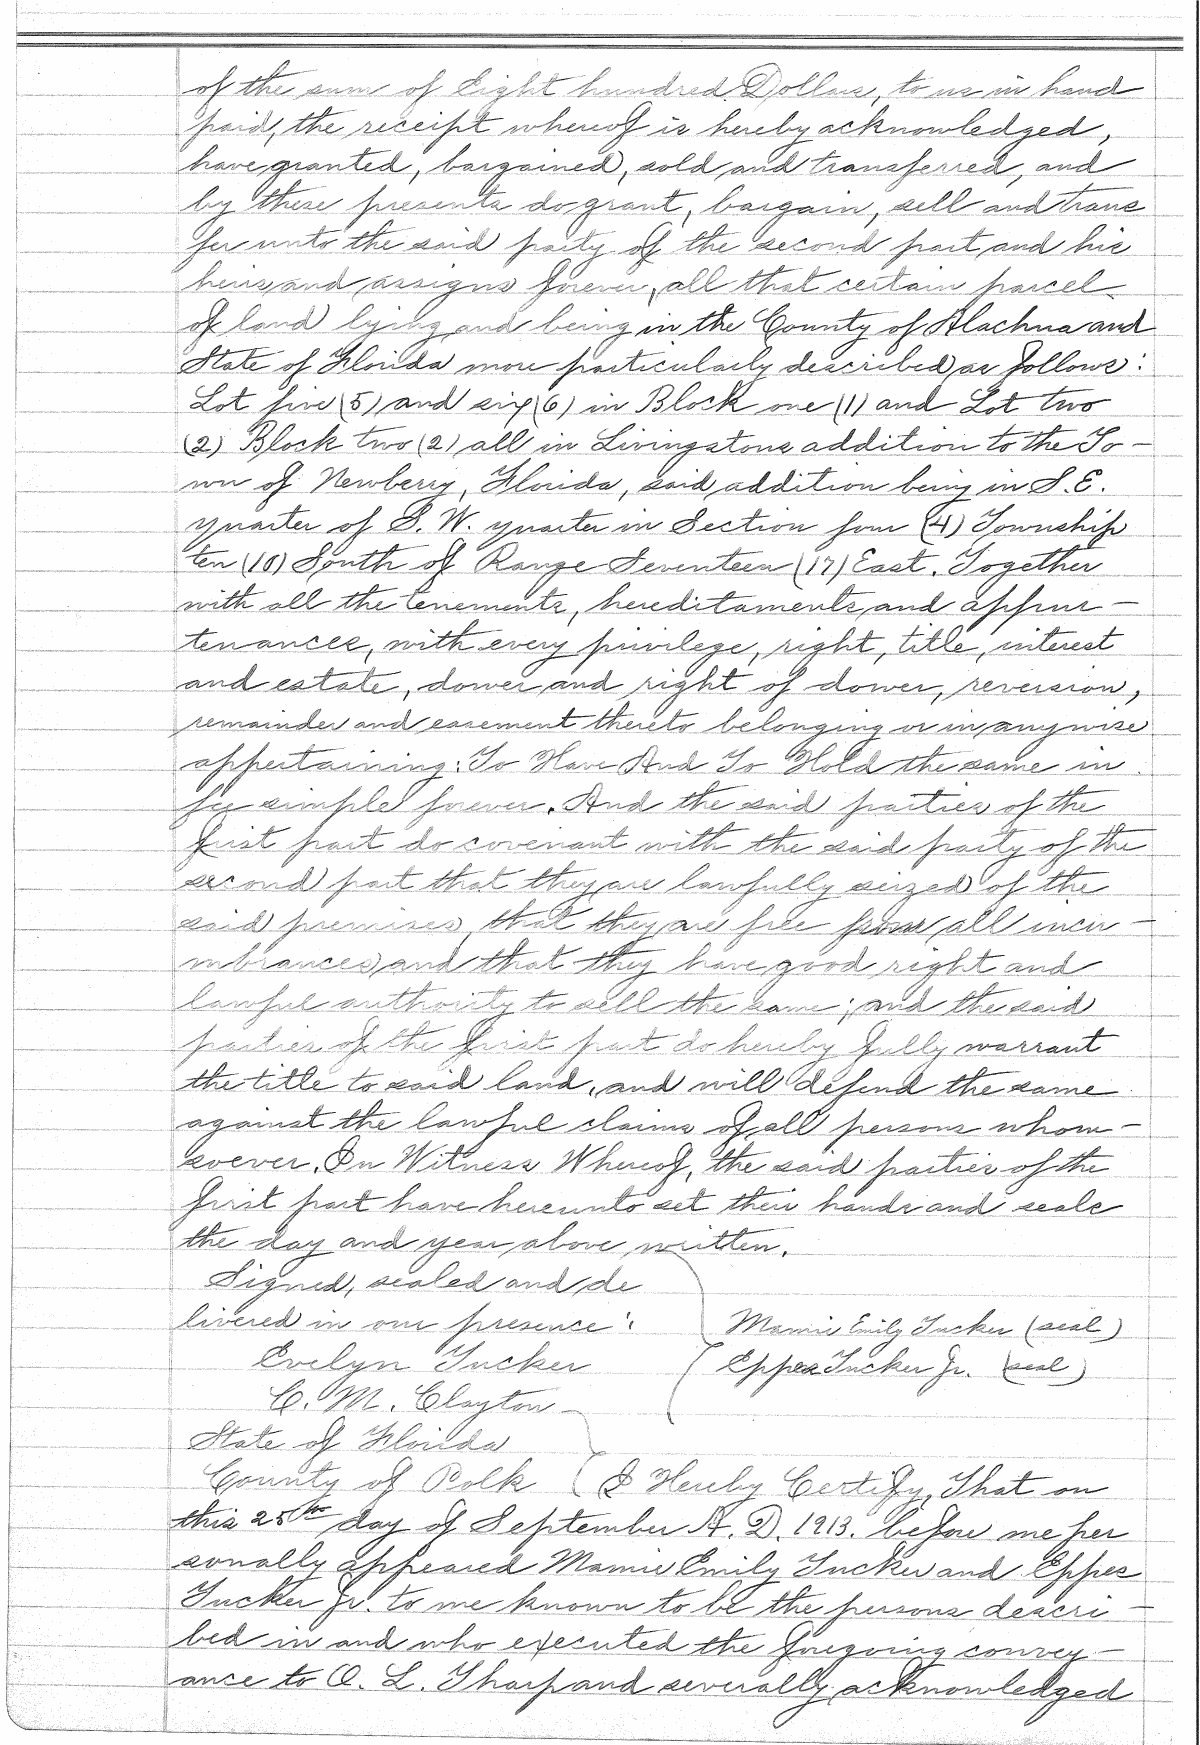 of the sum of Eight hundred Dollars, to us in hand
paid, the receipt whereof is hereby acknowledged,
have granted, bargained, sold and transferred, and
by these presents do grant, bargain, sell and trans
fer unto the said party of the second part and his
heirs and assigns forever, all that certain parcel
of land lying and being in the County of Alachua and
State of Florida more particularly described as follows:
Lot five (5) and six (6) in Block one (1) and Lot two
(2) Block two (2) all in Livingstons addition to the To-
wn of Newberry, Florida, said addition being in S.E.
quarter of S. W. quarter in Section four (4) Township
ten (10) South of Range Seventeen (17) East. Together
with all the tenements, hereditaments and appur-
tenances, with every privilege, right, title, interest
and estate, dower and right of dower, reversion,
remainder and easement thereto belonging or in anywise
appertaining: To Have And To Hold the same in
fee simple forever. And the said parties of the
first part do covenant with the said party of the
second part that they are lawfully seized of the
said premises, that they are free from all incu-
mbrances and that they have good right and
lawful authority to sell the same; and the said
parties of the first part do hereby fully warrant
the title to said land, and will defend the same
against the lawful claims of all persons whom-
soever. In Witness Whereof, the said parties of the
first part have hereunto set their hands and seals
the day and year above written.
Signed, sealed and de
livered in our presence:
Mamie Emily Tucker (seal)
Evelyn Tucker
Eppes Tucker Jr. (seal)
C. M. Clayton
State of Florida
County of Polk ( I Hereby Certify, That on
this 25th day of September A. D. 1913. before me per
sonally appeared Mamie Emily Tucker and Eppes
Tucker Jr. to me known to be the persons descri-
bed in and who executed the foregoing convey-
ance to O. L. Tharp and severally acknowledged